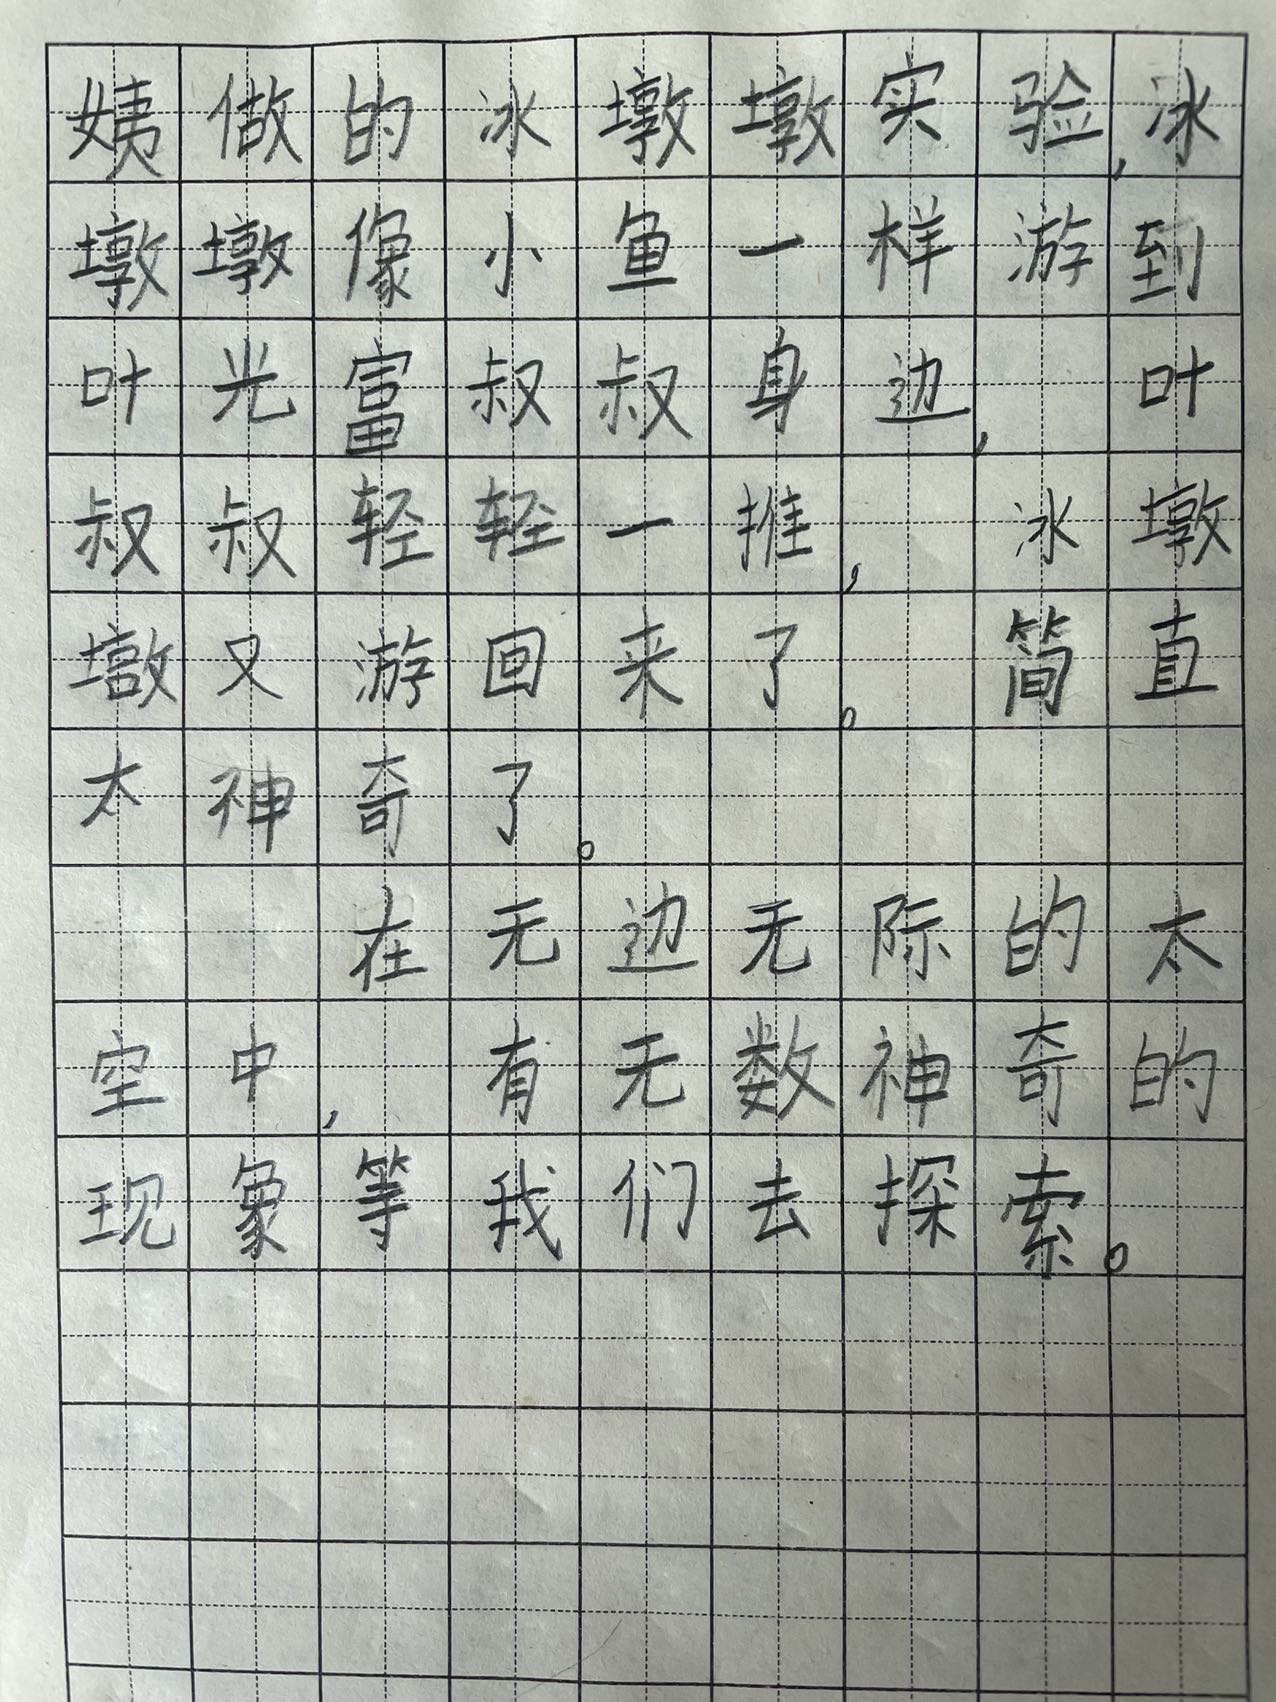 姨做的冰墩墩实验,冰
墩墩像小鱼一样游到
叶光富叔叔身边,叶
叔叔轻轻一推,冰墩
墩又游回来了。简直
太神奇了。
在无边无际的太
空中,有无数神奇的
现象等我们去探索。